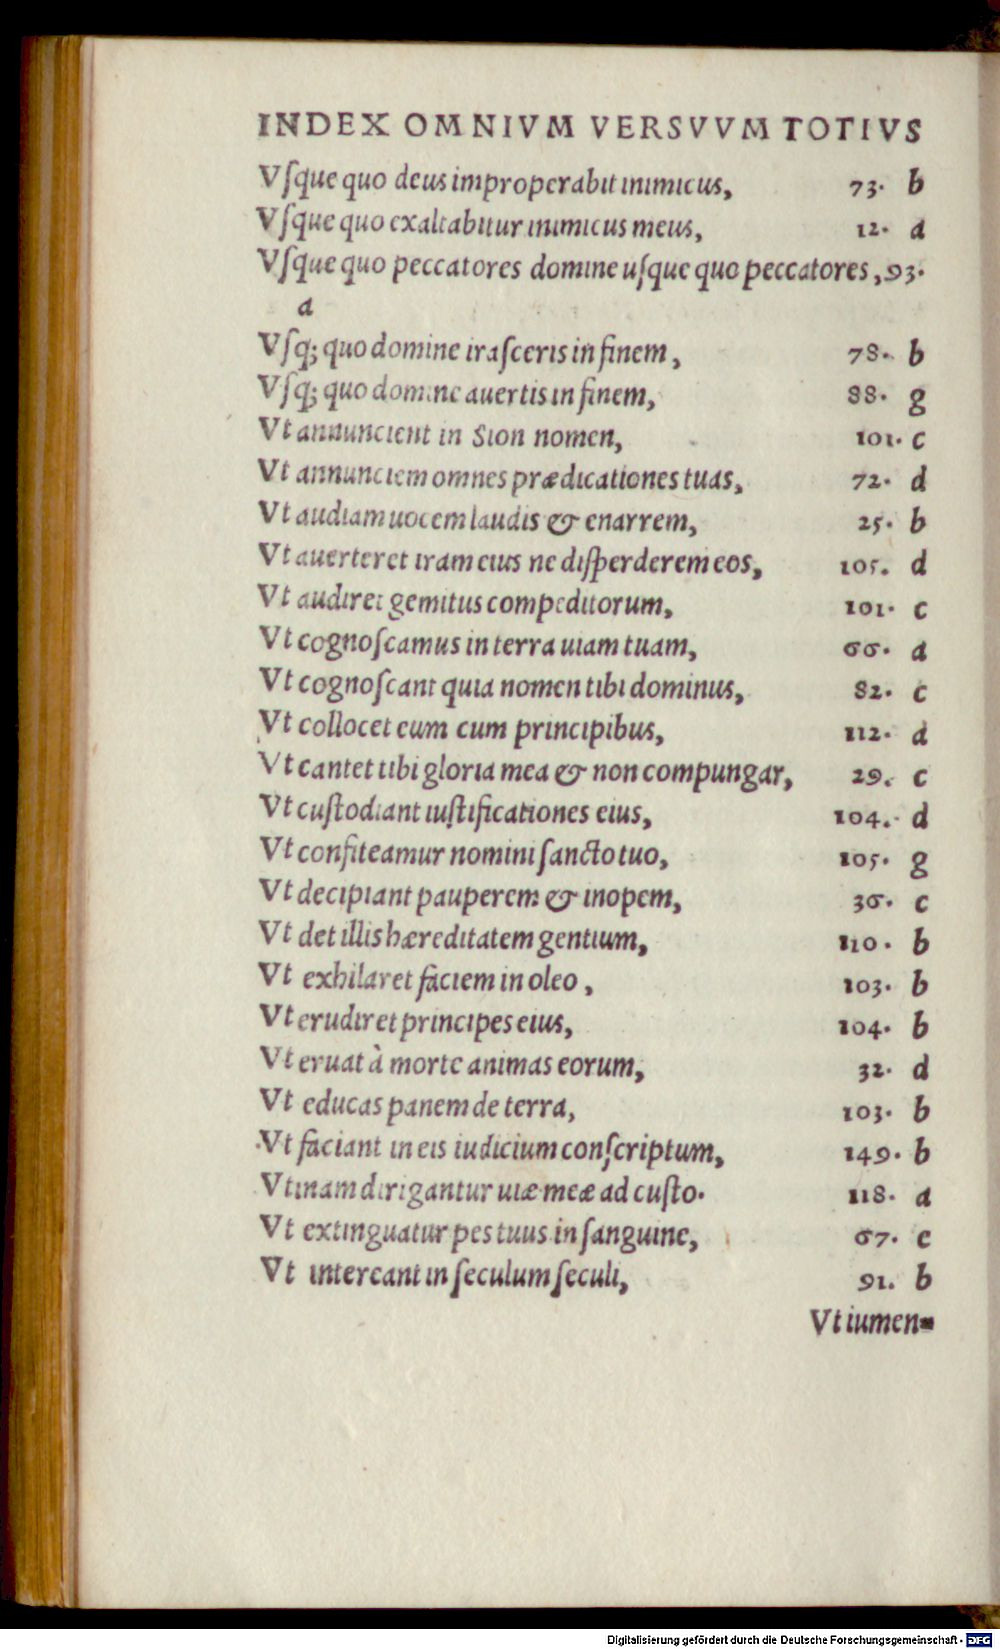 INDEX OMNIVM VERSVVM TOTIVS
Vſque quo deus improperabit inimicus, 73. b
Vſque quo exaltabitur inimicus meus, 12. a
Vſque quo peccatores domine uſque quo peccatores, 93.
a
Vſq; quo domine iraſceris in finem, 78. b
Vſq; quo domine auertis in finem, 88. g
Vt annuncient in Sion nomen, 101. c
Vt annunciem omnes prædicationes tuas, 72. d
Vt audiam uocem laudis & enarrem, 25. b
Vt auerteret iram eius ne diſperderem eos, 105. d
Vt audiret gemitus compeditorum, 101. c
Vt cognoſcamus in terra uiam tuam, 66. a
Vt cognoſcant quia nomen tibi dominus, 82. c
Vt collocet eum cum principibus, 112. a
Vt cantet tibi gloria mea & non compungar, 29. c
Vt cuſtodiant iuſtificationes eius, 104. d
Vt confiteamur nomini ſancto tuo, 105. g
Vt decipiant pauperem & inopem, 36. c
Vt det illis hæreditatem gentium, 110. b
Vt exhilaret faciem in oleo, 103. b
Vt erudiret principes eius, 104. b
Vt eruat à morte animas eorum, 32. d
Vt educas panem de terra, 103. b
Vt faciant in eis iudicium conſcriptum, 149. b
Vtinam dirigantur uiæ meæ ad cuſto. 118. a
Vt extinguatur pes tuus in ſanguine, 67. c
Vt intereant in ſeculum ſeculi, 91. b
Vt iumen-
Digitalisierung gefördert durch die Deutsche Forschungsgemeinschaft - DFG